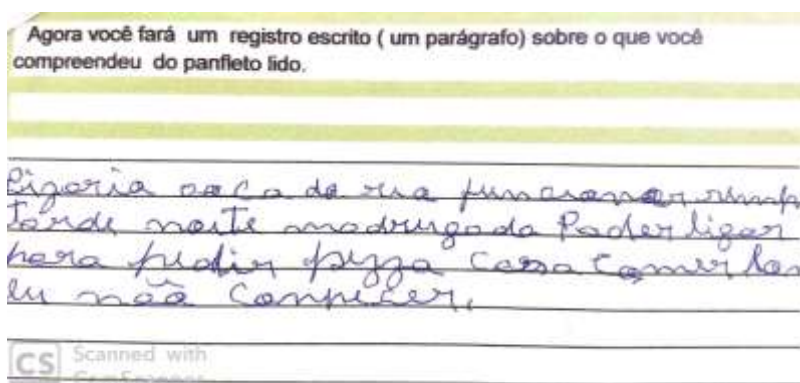 Agora você fará um registro escrito ( um parágrafo) sobre o que você
compreendeu do panfleto lido.
da rua funcionar
Tarde noite madrugada Poder ligar
para pedir pizza Casa Comer
eu não
CS Scanned with